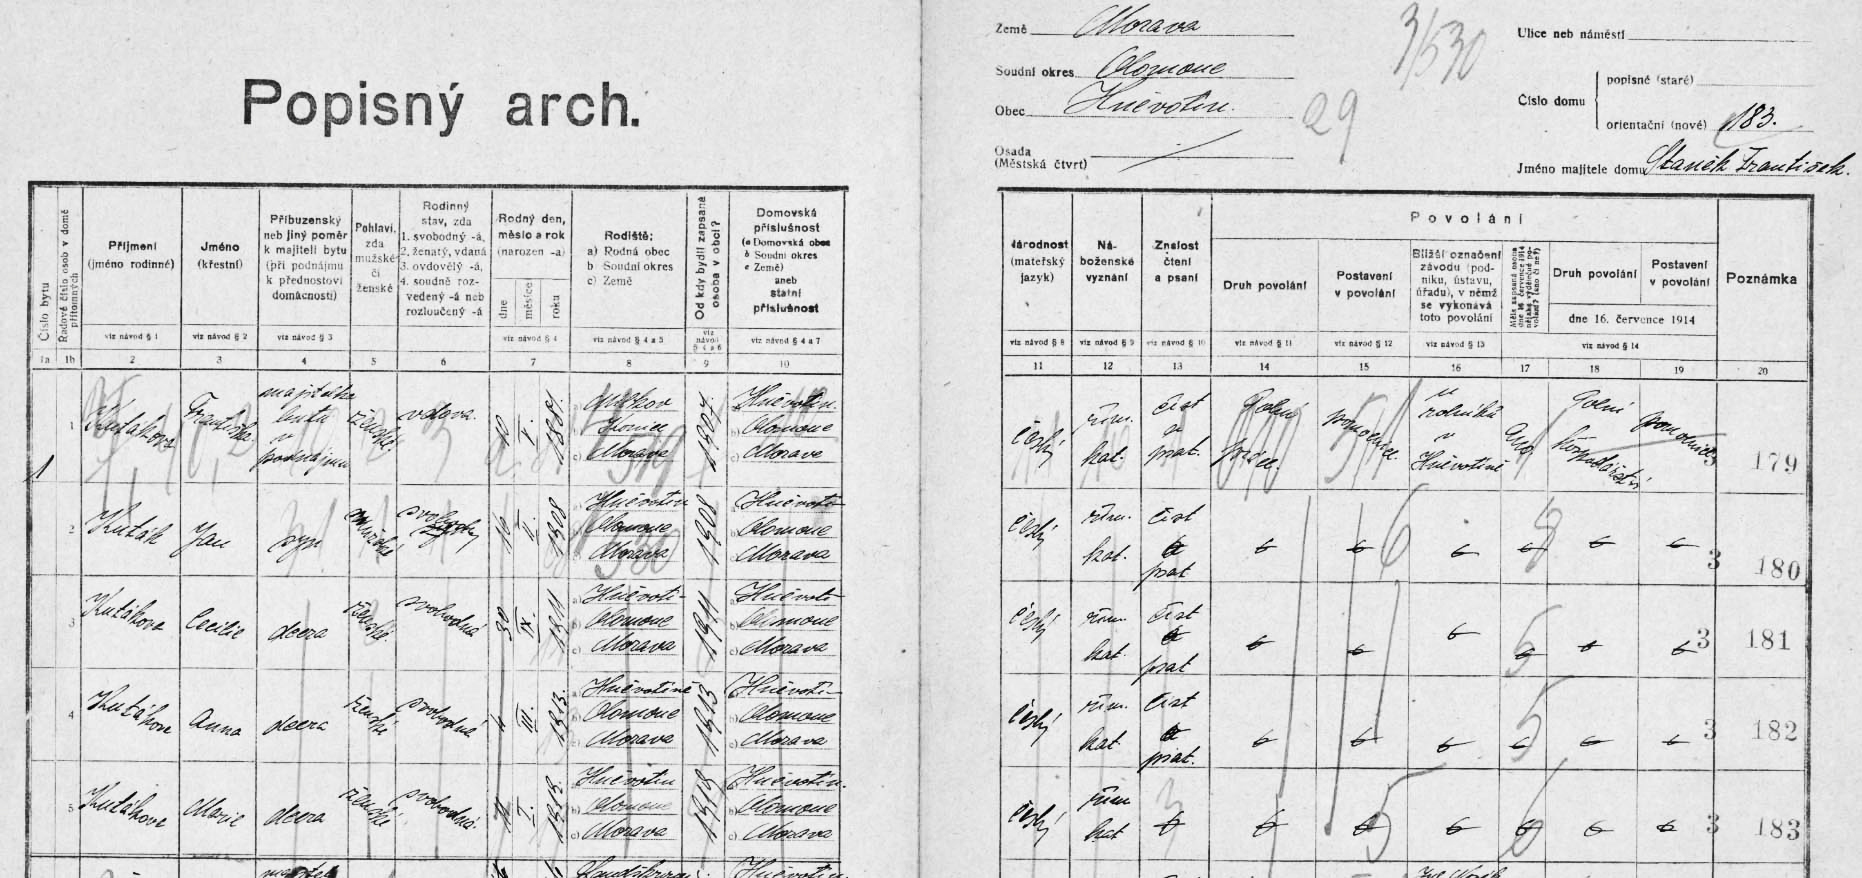 Popisný arch.
Země Morava
Soudní okres Olomouc
Obec Hněvotín.
Osada
(Městská čtvrť)
3/530
29
Ulice neb náměstí
Číslo domu
popisné (staré)
orientační (nové) 183.
Jméno majitele domu Staněk František.
Číslo bytu
Řadové číslo osob v domě přítomných
Příjmení
(jméno rodinné)
Jméno
(křestní)
Příbuzenský
neb jiný poměr
k majiteli bytu
(při podnájmu
k přednostovi
domácnosti)
Pohlaví,
zda
mužské
či
ženské
Rodinný
stav, zda
1. svobodný -á,
2. ženatý, vdaná
3. ovdovělý -á,
4. soudně roz-
vedený -á neb
rozloučený -á
Rodný den,
měsíc a rok
(narozen -a)
dne
měsíce
roku
Rodiště:
a) Rodná obec
b Soudní okres
c) Země
Od kdy bydlí zapsaná
osoba v obci?
Domovská
příslušnost
(a Domovská obec
b Soudní okres
c Země)
aneb
státní
příslušnost
viz návod § 1
viz návod § 2
viz návod § 3
viz návod § 4
viz návod § 4 a 5
viz návod § 4 a 6
viz návod § 4 a 7
1a 1b 2 3 4 5 6 7 8 9 10
Národnost
(mateřský
jazyk)
Ná-
boženské
vyznání
Znalost
čtení
a psaní
Povolání
Druh povolání
Postavení
v povolání
Bližší označení
závodu (pod-
niku, ústavu,
úřadu), v němž
se vykonává
toto povolání
Druh povolání
Postavení
v povolání
dne 16. července 1914
Poznámka
viz návod § 8
viz návod § 9
viz návod § 10
viz návod § 11
viz návod § 12
viz návod § 13
viz návod § 14
11 12 13 14 15 16 17 18 19 20
1
1 Kutáková Františka majitelka bytu v podnájmu ženské vdova I. 1881.
Morava
1907.
Hněvotín.
b) Olomouc
c) Morava
český řím. kat. číst a psát. Polní práce. pomocnice. u rolníků v Hněvotíně Ano Polní hospodářství pomocnice 3 179
2 Kuták Jan syn mužské svobodný II. 1908
Hněvotín
Olomouc
Morava
1908
Hněvotí-
Olomouc
Morava
český řím. kat. číst a psát 3 180
3 Kutáková Cecilie dcera ženské svobodná 30 IX. 1911
a) Hněvotí-
b) Olomouc
c) Morava
1911
Hněvotí-
b) Olomouc
c) Morava
český řím. kat. číst a psát 3 181
4 Kutáková Anna dcera ženské svobodná III. 1913.
a) Hněvotíně
b) Olomouc
c) Morava
1913
Hněvotí-
b) Olomouc
c) Morava
český řím. kat číst a psát. 3 182
5 Kutáková Marie dcera ženské svobodná. I.
Hněvotín
b) Olomouc
c) Morava
Hněvotín.
b) Olomouc
c) Morava
český řím kat 3 183
Hněvotín.